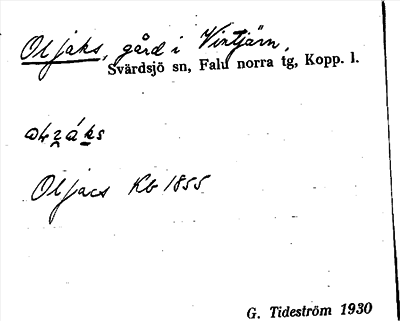 Oljaks, gård i Vintjärn,
Svärdsjö sn, Falu norra tg, Kopp. l.
Oljacs Kb 1855
G. Tideström 1930